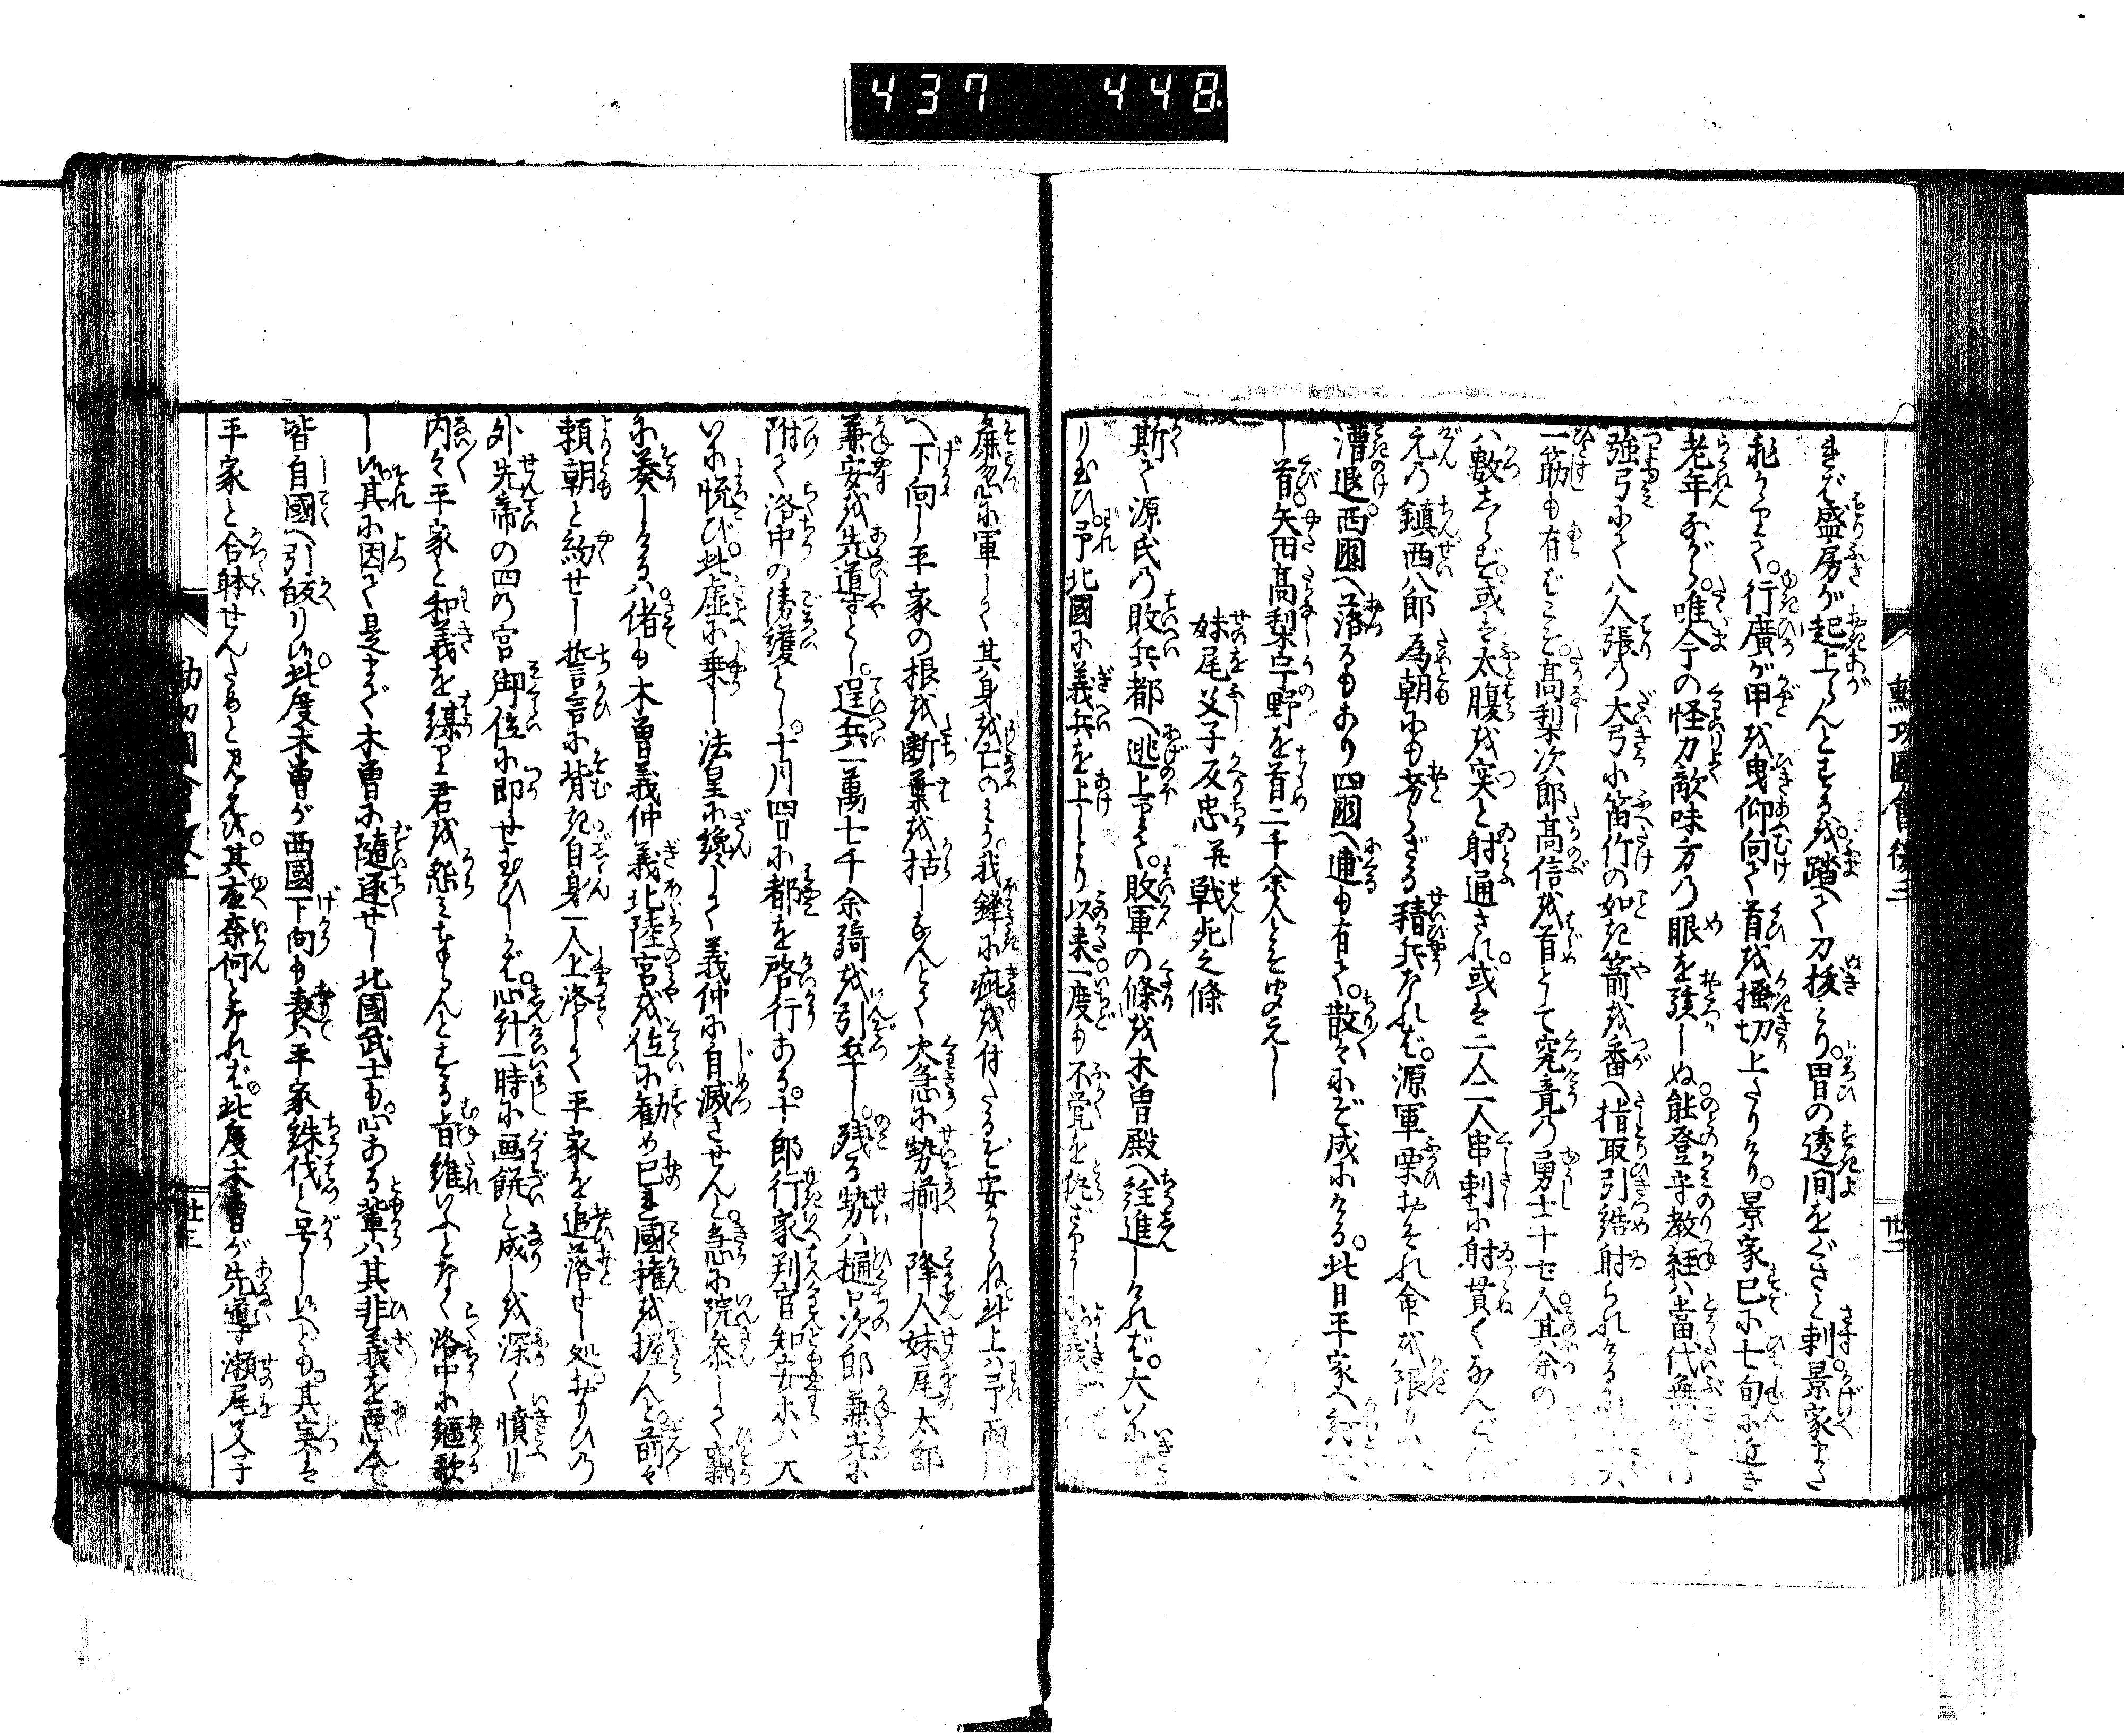 437 448
きば盛房が起上らんとする我踏へて刀拔より冑の透間をぐさと刺景家まさ
行廣が甲我曳仰向て首我掻切上たりけり景家已に七旬に近き
老年ながら唯今の怪力敵味方の眼を驚しぬ能登守教経は當代無
強弓にて八人張の大弓に笛竹の如き箭我番へ指取引詰射られける
一筋も有ばこそ高梨次郎高信我首として究竟の勇士十七人其余の
八數しらず或は太腹我突と射通され或は二人一人串刺に射貫くなんど
元の鎮西八郎為朝にも劣らざる精兵なれば源軍栗おそれ命我限り
漕退西國へ落るもあり四國へ逋も有て散々にぞ成にける此日平家へ
し首矢田高梨宇野を首二千余人とぞ聞えし
妹尾父子反忠并戦死之條
斯て源氏の敗兵都へ逃上りて敗軍の條我木曽殿へ註進しければ大いに
り玉ひ予北國に義兵を上しより以来一度も不覚を執ざりしに義
麁忽に軍して其身我亡のミか我鋒に疵我付たるぞ安からね此上は予西
へ下向し平家の根我断葉我枯しなんとて火急に勢揃し降人妹尾太郎
兼安我先道とし逞兵一萬七千余騎我引率し残る勢は樋口次郎兼光に
附て洛中の守護とし十月四日に都を啓行ある十郎行家判官知安ホハ大
いに悦び此虚に乗し法皇に纔して義仲に自滅させんと急に院参して竊
に奏しけるは偖も木曽義仲義北陸宮我位に勧め已レ國権我握んと前々
頼朝と約せし誓言に背き自身一人上洛して平家を追落せし処おもひの
外先帝の四の宮御位に即せ玉ひしかば心計一時に画餅と成し我深く憤り
内々平家と和義を謀り君我怨ミ奉らんとする旨維いふとなく洛中に謳歌
し候其に因て是まで木曽に隨逐せし北國武士も心ある輩は其非義を悪ミ今
皆自國へ引皈り候此度木曽が西國下向も表は平家誅伐と号し候へども其実は
平家と合躰せんためと見え候其故奈何となれば此度木曽が先導瀬尾父子
勲功圖會後二
廿二
廿三